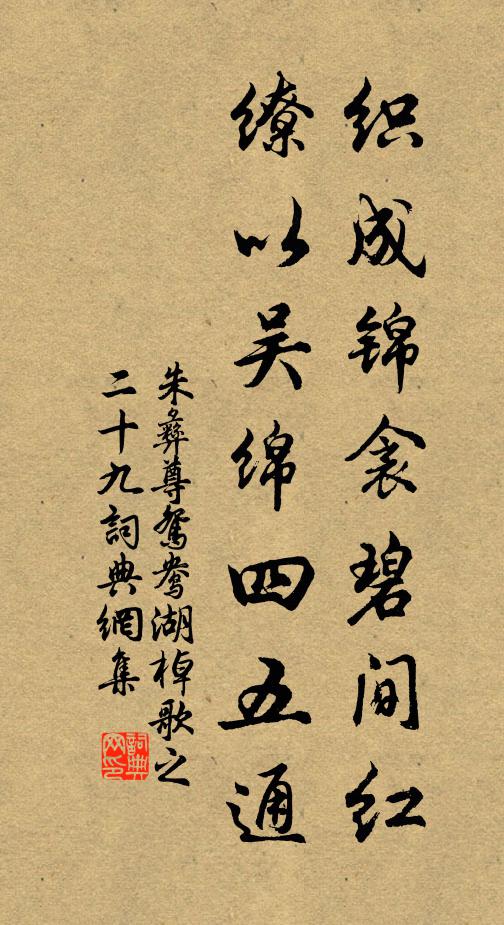 织成锦衾碧间红
缭以吴绵四五通
朱彝尊鸳鸯湖棹歌之
二十九詞典網集
詞典网印